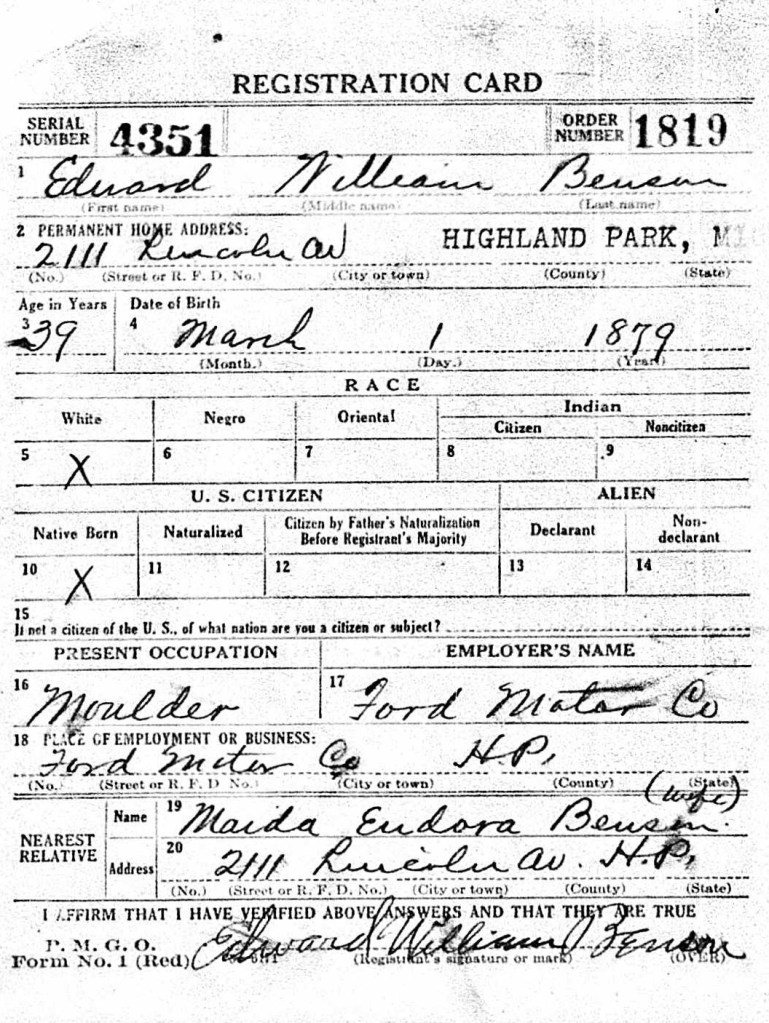 REGISTRATION CARD
SERIAL NUMBER 4351 ORDER NUMBER 1819
1 Edward William Benson
(First name) (Middle name) (Last name)
2 PERMANENT HOME ADDRESS:
2111 Lincoln Av HIGHLAND PARK, MIC
(No.) (Street or R. F. D. No.) (City or town) (County) (State)
Age in Years Date of Birth
3 39 4 March 1 1879
(Month.) (Day.) (Year)
RACE
White Negro Oriental Indian
Citizen Noncitizen
5 X 6 7 8 9
U. S. CITIZEN ALIEN
Native Born Naturalized Citizen by Father's Naturalization Before Registrant's Majority Declarant Non-declarant
10 X 11 12 13 14
15
If not a citizen of the U. S., of what nation are you a citizen or subject?
PRESENT OCCUPATION EMPLOYER'S NAME
16 Moulder 17 Ford Motor Co
18 PLACE OF EMPLOYMENT OR BUSINESS:
Ford Motor Co H.P.
(No.) (Street or R. F. D No.) (City or town) (County) (State)
(wife)
NEAREST RELATIVE Name 19 Maida Eudora Benson.
Address 20 2111 Lincoln Av. H.P.
(No.) (Street or R. F. D. No.) (City or town) (County) (State)
I AFFIRM THAT I HAVE VERIFIED ABOVE ANSWERS AND THAT THEY ARE TRUE
P. M. G. O.
Form No. 1 (Red) Edward William Benson
(Registrant's signature or mark) (OVER)